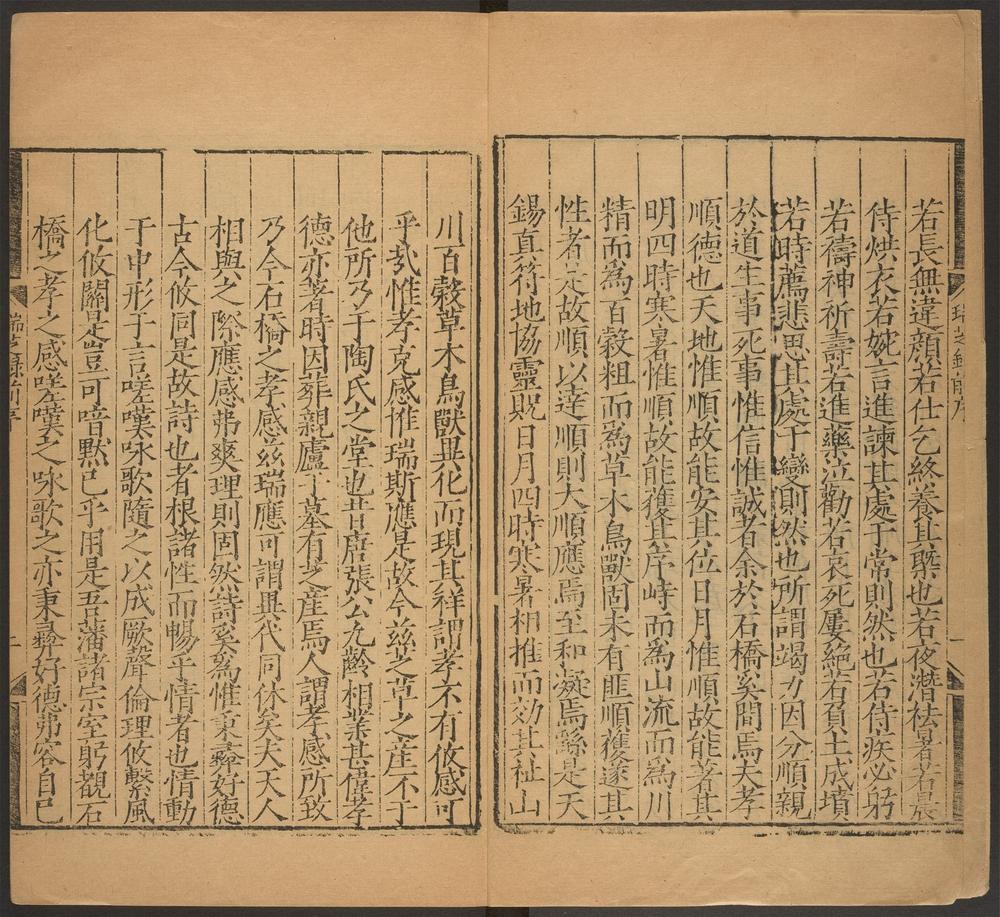 若長無違顏若仕乞終養其槩也若夜潛祛暑若晨
侍烘衣若婉言進諫其處于常則然也若侍疾必躬
若禱神祈壽若進藥泣勸若哀死屢絶若負土成墳
若時薦悲思其處于變則然也所謂竭力因分順親
於道生事死事惟信惟誠者余於石橋奚間焉夫孝
順德也天地惟順故能安其位日月惟順故能著其
明四時寒暑惟順故能獲其序峙而為山流而為川
精而為百糓粗而為草木鳥獸固未有匪順獲遂其
性者是故順以達順則大順應焉至和凝焉繇是天
錫真符地協靈貺日月四時寒暑相推而効其祉山
川百糓草木鳥獸異化而現其祥謂孝不有攸感可
乎㢤惟孝克感惟瑞斯應是故今兹芝草之産不于
他所乃于陶氏之堂也昔唐張公九齡相業甚偉孝
德亦著時因葬親廬于墓有芝産焉人謂孝感所致
乃今石橋之孝感兹瑞應可謂異代同休矣夫天人
相與之際應感弗爽理則固然詩奚為惟秉彞好德
古今攸同是故詩也者根諸性而暢乎情者也情動
于中形于言嗟嘆咏歌隨之以成厥聲倫理攸繫風
化攸關是豈可喑默已乎用是吾藩諸宗室躬覩石
橋之孝之感嗟嘆之咏歌之亦秉彞好德弗容自已
瑞芝錄前序
一
瑞芝錄前序
二